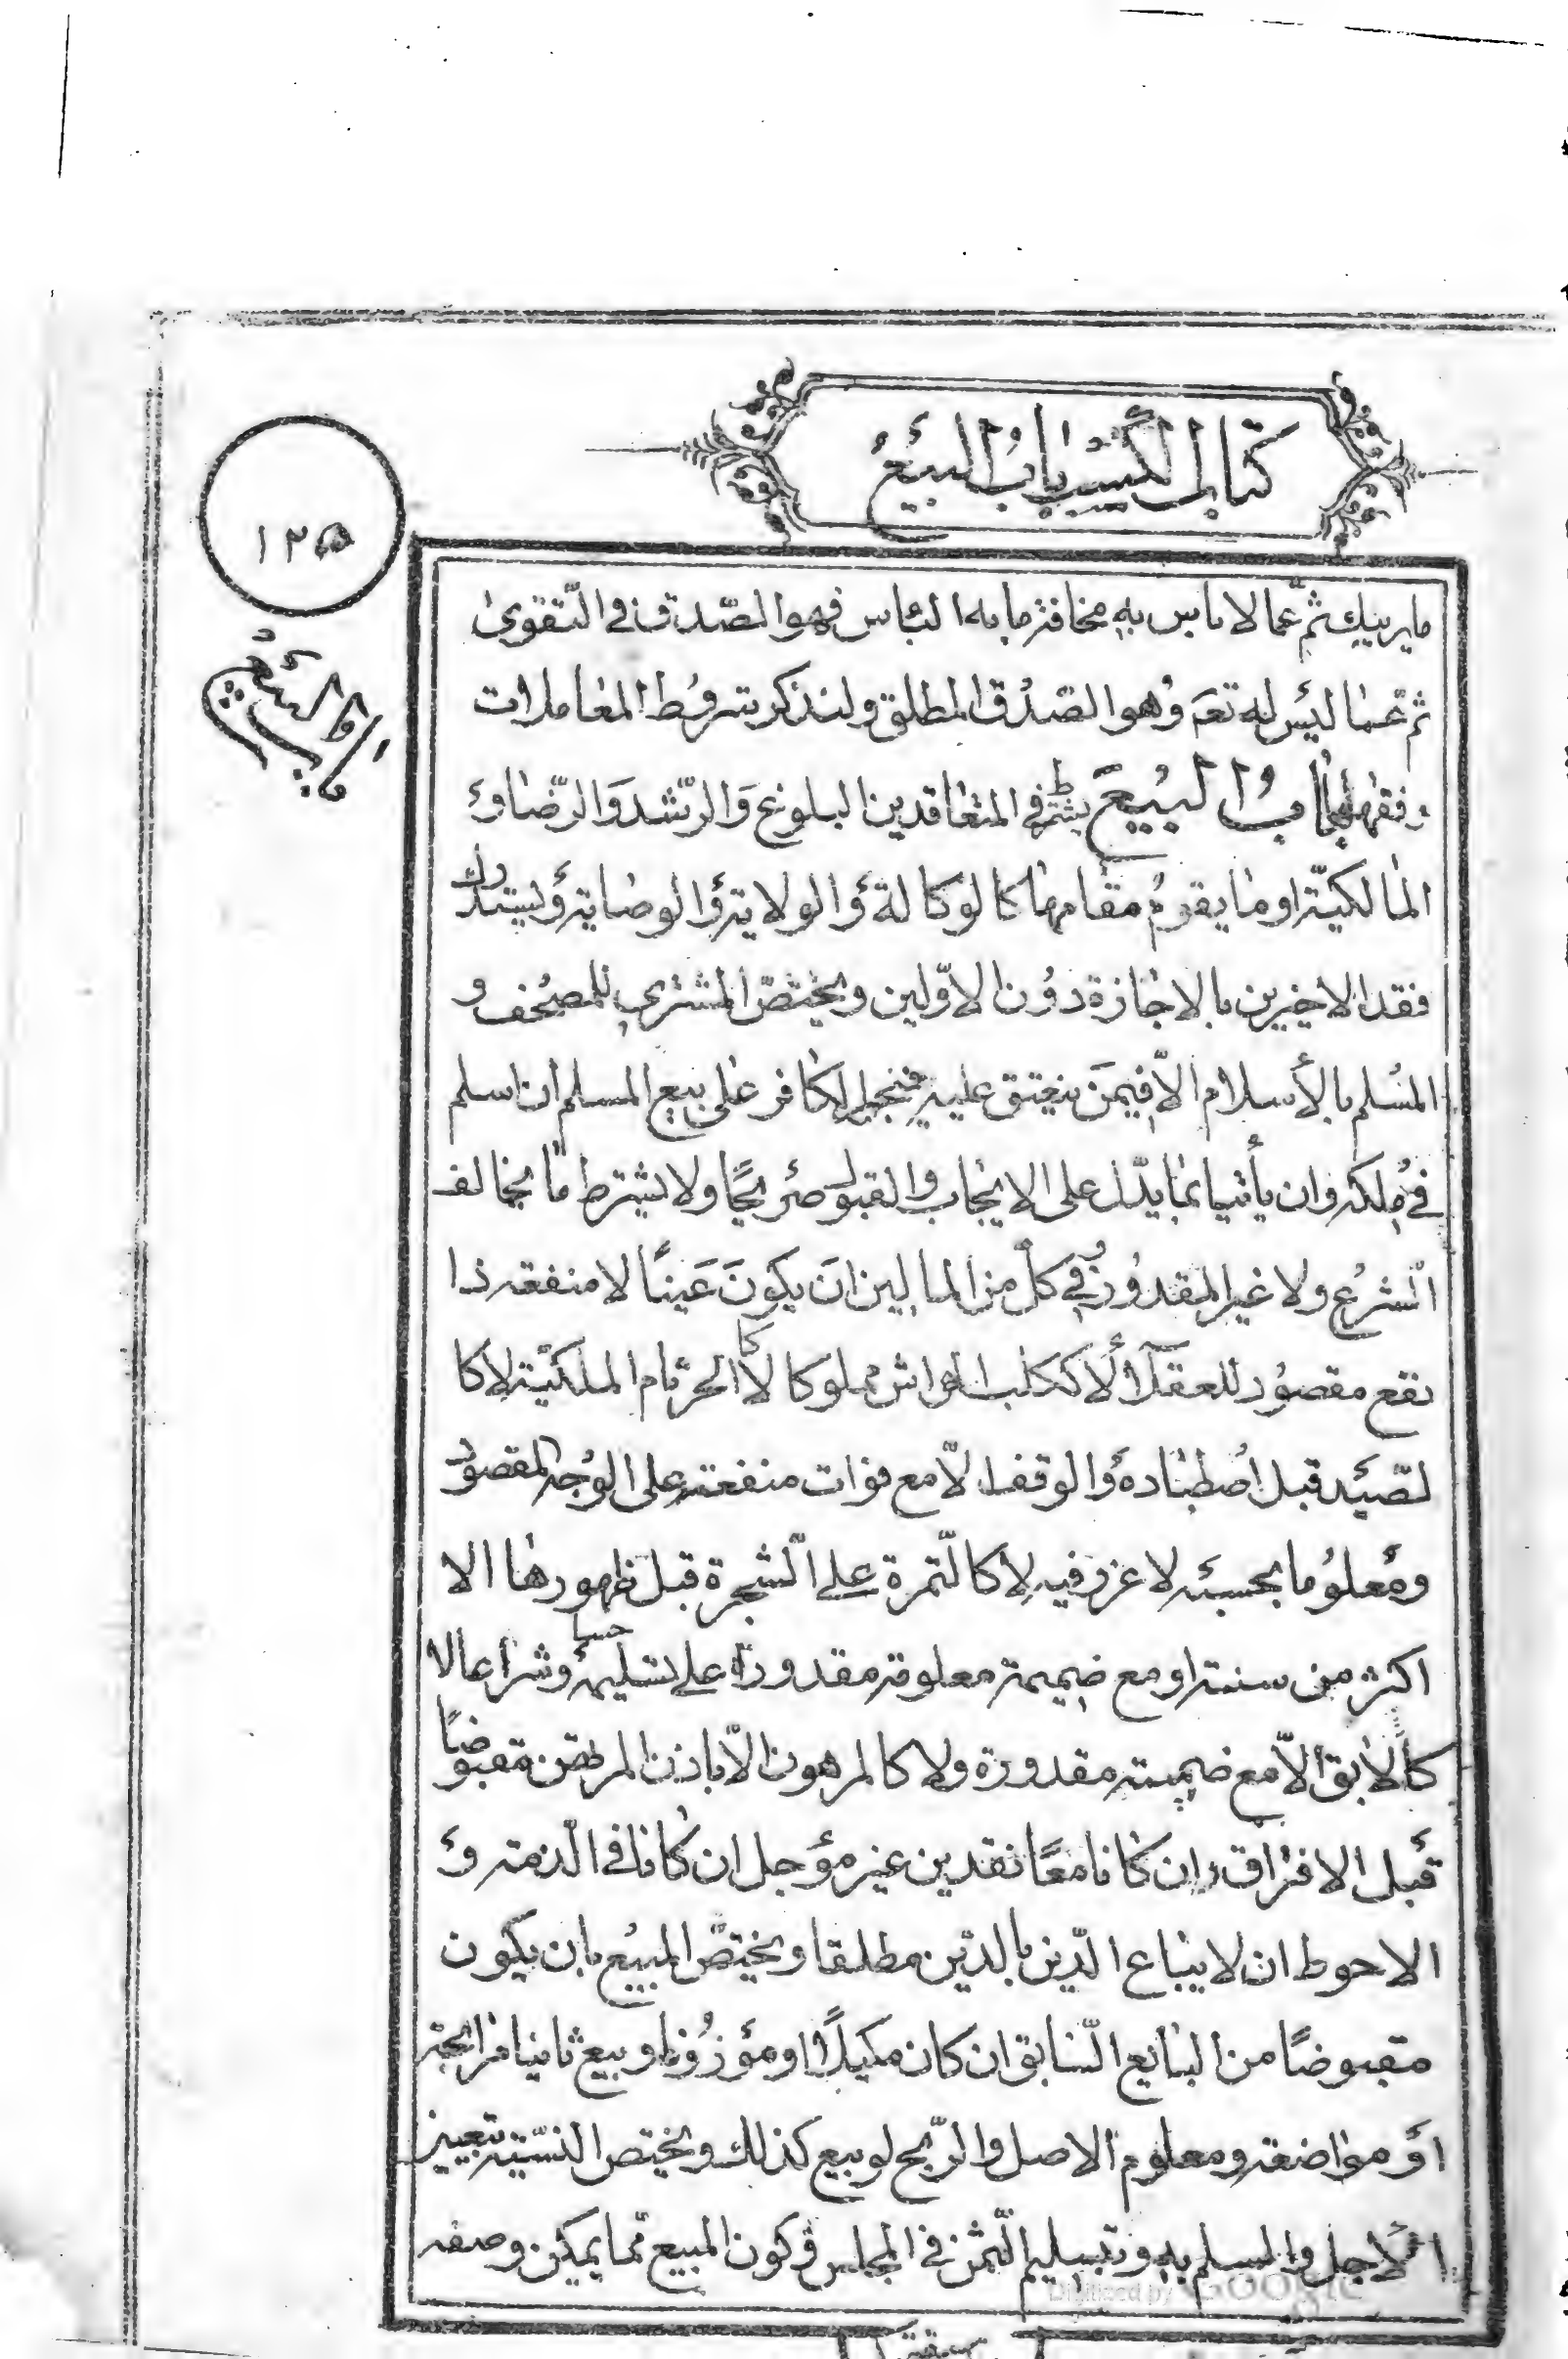 كتاب الكسب باب البيع
١٢٥
باب البيع
ما يريبك ثمّ عمّا لا باس به مخافة ما به الباس فهو الصّدق في التّقوى
ثم عمّا ليس لله تعه وهو الصّدق المطلق ولنذكر شروط المعاملات
وفقهها باب البيع يشترط في المتعاقدين البلوغ والرّشد والرّضا و
المالكيّة او ما يقوم مقامها كالوكالة والولاية والوصاية ويستدرك
فقد الاخيرين بالاجازة دون الاوّلين ويختصّ المشتري للمصحف و
المسلم بالأسلام الاّ فيمن ينعتق عليه فيجبر الكافر على بيع المسلم ان اسلم
في ملكه وان يأتيا بما يدّل على الايجاب والقبول صريحًا ولا يشترط ما يخالف
الشرع ولا غير المقدور وفي كلّ من المالين ان يكون عينًا لا منفعة ذا
نفع مقصود للعقلاء لا ككلب الهراش مملوكا لا كالحرّ تام الملكيّة لا كا
لصّيد قبل اصطياده والوقف الاّ مع فوات منفعته على الوجه المقصود
ومعلوما بحسبه لا غرر فيه لا كالثّمرة على الشّجرة قبل ظهورها الا
اكثر من سنة او مع ضميمة معلومة مقدورا على تسليمه حسا وشرعا لا
كالابق الاّ مع ضميمة مقدورة ولا كالمرهون الاّ باذن المرتهن مقبوضًا
قبل الافتراق ان كانا معًا نقدين غير مؤجل ان كانا في الذمة و
الاحوط ان لا يباع الدّين بالدّين مطلقا ويختصّ المبيع بان يكون
مقبوضًا من البايع السّابق ان كان مكيلاً او موزونا وبيع ثانيا مرابحة
او مواضعة ومعلوم الاصل والرّبح لو بيع كذلك ويختص النسيّة بتعيين
الاجل والسلم به وبتسليم الثّمن في المجلس وكون المبيع ممّا يمكن وصفه
Digitized by Google